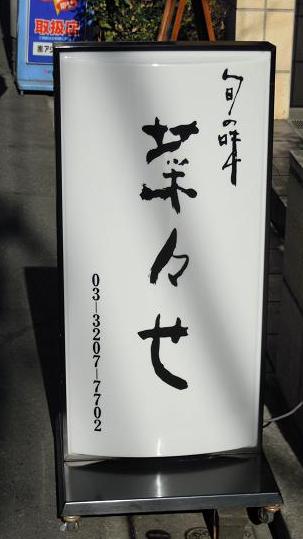 旬の味
菜々せ
03-3207-7702
取扱店